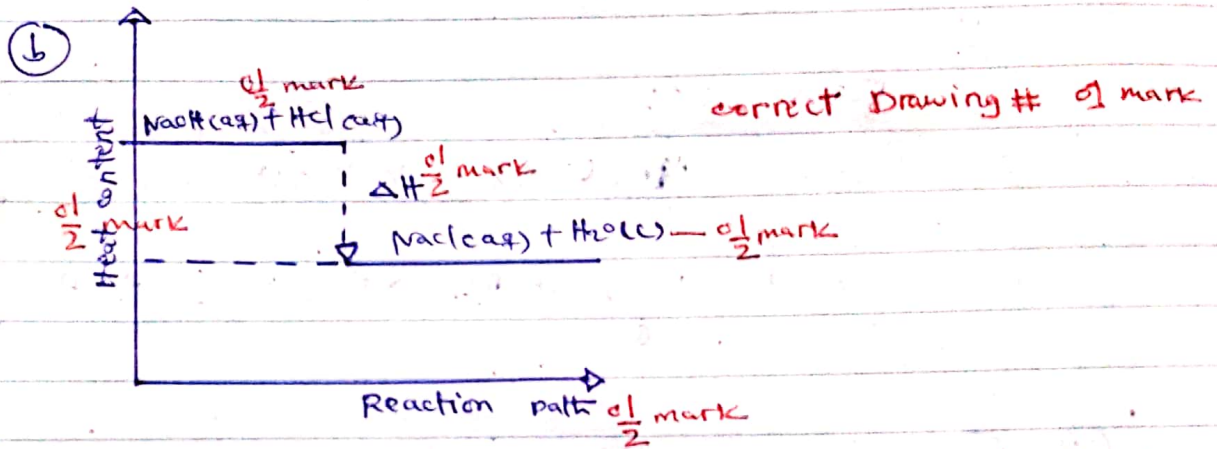 b
01/2 mark
NaOH(aq) + HCl (aq)
correct Drawing # 01 mark
Heat content
01/2 mark
ΔH 01/2 mark
NaCl(aq) + H2O(l) — 01/2 mark
Reaction path 01/2 mark